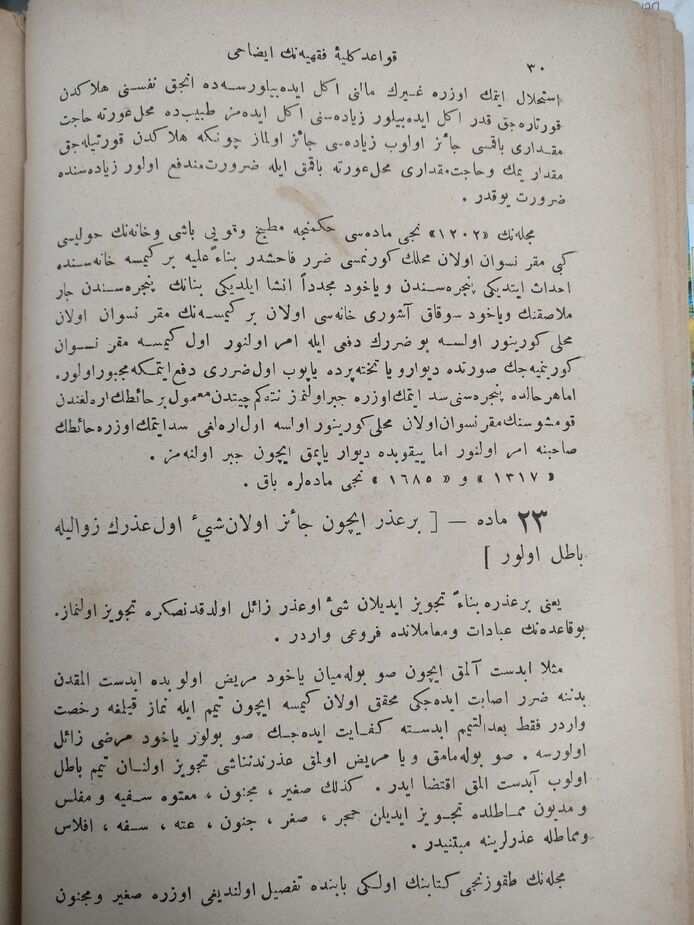 ٣٠
قواعد كليهٔ فقهيه‌نك ايضاحى
استحلال ايتمك اوزره غيرك مالنى اكل ايده‌بيلورسه‌ده انجق نفسنى هلاكدن
قورتاره‌جق قدر اكل ايده‌بيلور زياده‌سنى اكل ايده‌مز طبيب‌ده محل‌عورته حاجت
مقدارى باقمسى جائز اولوب زياده‌سى جائز اولماز چونكه هلاكدن قورتيله‌جق
مقدار يمك وحاجت‌مقدارى محل‌عورته باقمق ايله ضرورت‌مندفع اولور زياده‌سنده
ضرورت يوقدر .
مجله‌نك «١٢٠٢» نجى ماده‌سى حكمنجه مطبخ وقويى باشى وخانه‌نك حوليسى
كبى مقر نسوان اولان محلك كورنمسى ضرر فاحشدر بناءً عليه بر كيمسه خانه‌سنده
احداث ايتديكى پنجره‌سندن وياخود مجدداً انشا ايلديكى بنانك پنجره‌سندن جار
ملاصقنك وياخود سوقاق آشورى خانه‌سى اولان بر كيمسه‌نك مقر نسوان اولان
محلى كورينور اولسه بو ضررك دفعى ايله امر اولنور اول كيمسه مقر نسوان
كورينميه‌جك صورتده ديوارو يا تخته‌پرده ياپوب اول‌ضررى دفع‌ايتمكه مجبوراولور.
اماهرحالده پنجره‌سنى‌سد ايتمك‌اوزره جبراولنمز نته‌كم‌چيتدن‌معمول‌برحائطك‌اره‌لغندن
قومشوسنك‌مقرنسوان‌اولان محلى‌كورينور اولسه اول‌اره‌لغى سدايتمك‌اوزره‌حائطك
صاحبنه امر اولنور اما ييقوبده ديوار ياپمق ايچون جبر اولنه‌مز .
« ١٣١٧ » و « ١٦٨٥ » نجى ماده‌لره باق .
٢٣ ماده — [ برعذر ايچون جائز اولان‌شئ اول‌عذرك زواليله
باطل اولور ]
يعنى برعذره بناءً تجويز ايديلان شئ اوعذر زائل اولدقدنصكره تجويز اولنماز.
بوقاعده‌نك عبادات ومعاملاتده فروعى واردر .
مثلا ابدست آلمق ايچون صو بوله‌ميان ياخود مريض اولو بده ابدست المقدن
بدننه ضرر اصابت ايده‌جكى محقق اولان كيمسه ايچون تيمم ايله نماز قيلمغه رخصت
واردر فقط بعدالتيمم ابدسته كفايت ايده‌جك صو بولور ياخود مرضى زائل
اولورسه . صو بوله‌مامق و يا مريض اولمق عذرندنناشى تجويز اولنان تيمم باطل
اولوب آبدست المق اقتضا ايدر . كذلك صغير ، مجنون ، معتوه سفيه و مفلس
و مديون مماطلده تجويز ايديلن حجر ، صغر ، جنون ، عته ، سفه ، افلاس
ومماطله عذرلرينه مبتنيدر .
مجله‌نك طقوزنجى كتابنك اولكى بابنده تفصيل اولنديغى اوزره صغير ومجنون